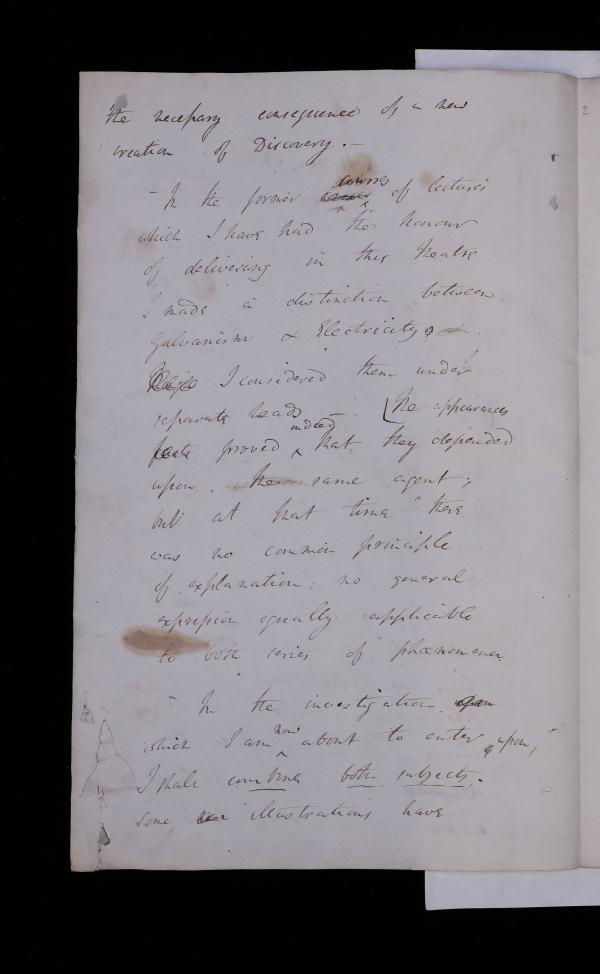 the necessary consequence of a new
creation of Discovery. —
– In the former courses of lectures
which I have had "the" honour
of delivering in this theatre
I made a distinction between
Galvanism & Electricity
I considered them under
separate heads – The appearances
facts proved indeed that they depended
upon the same agent;
but at that time "there
was no common principle
of explanation; no general
expression equally applicable
to both series of phœnomena.
– In the investigation upon
which I am now about to enter upon,
I shall combine both subjects.
Some new illustrations have
2